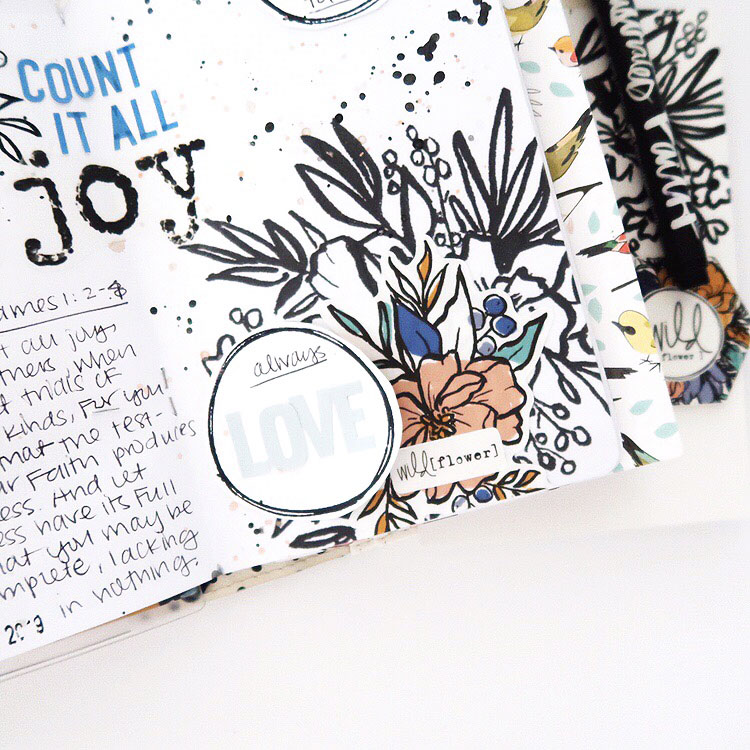 COUNT
IT ALL
joy
ames 1: 2-4
all joy
thers, when
trials of
kinds, For you
that the test-
ur Faith produces
ess. And let
ess have its Full
hat you may be
mplete, lacking
in nothing.
2019
always
LOVE
wild [flower]
Faith
wild
flower